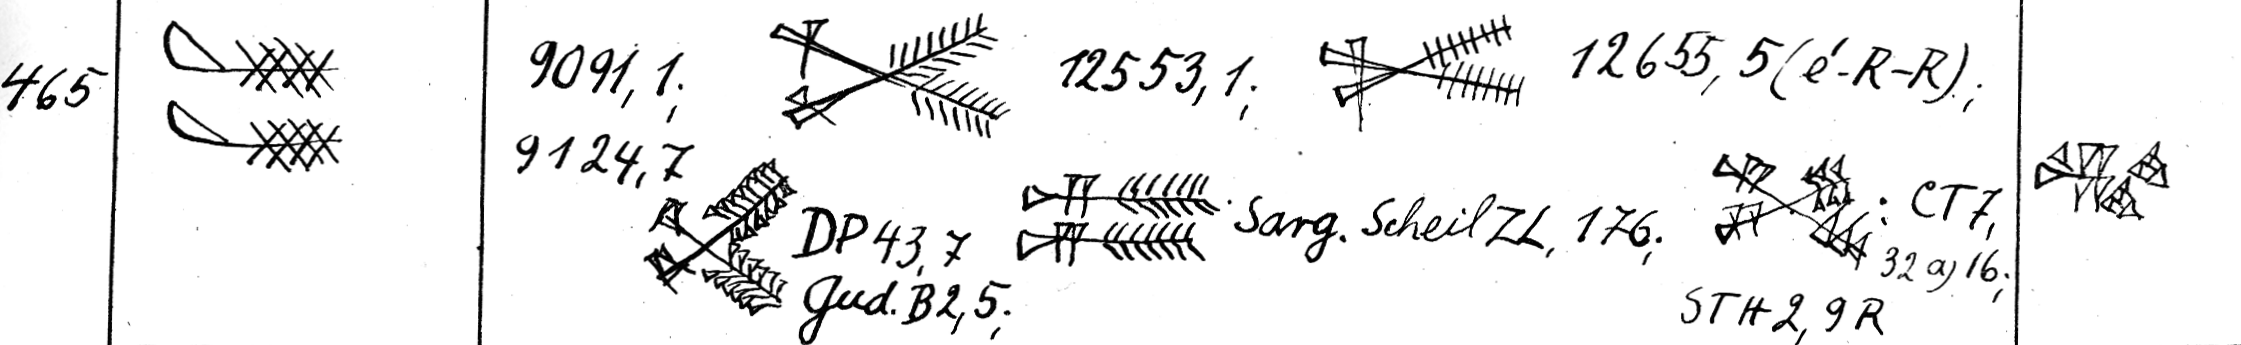 465
9091, 1; 12553, 1; 12655, 5 (é-R-R);
9124, 7
DP 43, 7 Sarg. Scheil ZL, 176; : CT 7,
32 a) 16;
Gud. B 2, 5;
STH 2, 9 R